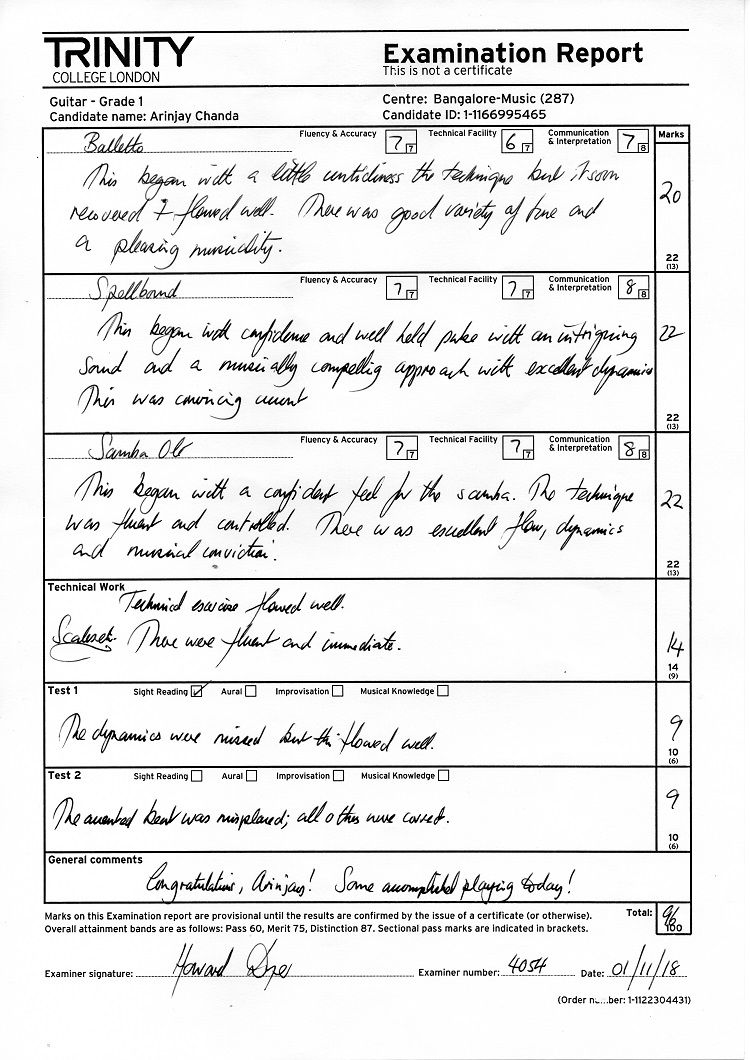 TRINITY
COLLEGE LONDON
Examination Report
This is not a certificate
Guitar - Grade 1
Centre: Bangalore-Music (287)
Candidate name: Arinjay Chanda
Candidate ID: 1-1166995465
Balletto
Fluency & Accuracy 7 7 Technical Facility 6 7 Communication & Interpretation 7 8 Marks
This began with a little untidiness the technique but it soon
recovered & flowed well. There was good variety of tone and
a pleasing musicality.
20
22
(13)
Spellbound
Fluency & Accuracy 7 7 Technical Facility 7 7 Communication & Interpretation 8 8
This began with confidence and well held pulse with an intriguing
sound and a musically compelling approach with excellent dynamics
This was convincing
22
22
(13)
Samba Olé
Fluency & Accuracy 7 7 Technical Facility 7 7 Communication & Interpretation 8 8
This began with a confident feel for the samba. The technique
was fluent and controlled. There was excellent flow, dynamics
and musical conviction.
22
22
(13)
Technical Work
Technical exercise flowed well.
There were fluent and immediate.
14
14
(9)
Test 1 Sight Reading ✓ Aural Improvisation Musical Knowledge
The dynamics were missed but this flowed well.
9
10
(6)
Test 2 Sight Reading Aural Improvisation Musical Knowledge
The accented beat was misplaced; all others were correct.
9
10
(6)
General comments
Congratulations, Arinjay! Some accomplished playing today!
Marks on this Examination report are provisional until the results are confirmed by the issue of a certificate (or otherwise).
Overall attainment bands are as follows: Pass 60, Merit 75, Distinction 87. Sectional pass marks are indicated in brackets.
Total: 96
100
Examiner signature: Howard Examiner number: 4054 Date: 01/11/18
(Order n...ber: 1-1122304431)